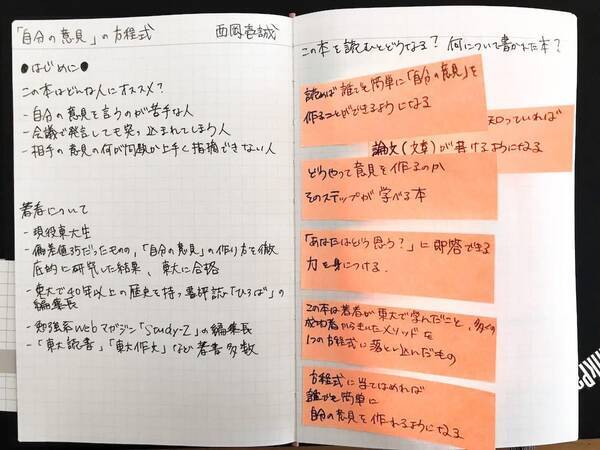 「自分の意見」の方程式 西岡壱誠
●はじめに●
この本はどんな人にオススメ?
- 自分の意見を言うのが苦手な人
- 会議で発言しても突っ込まれてしまう人
- 相手の意見の何が問題か上手く指摘できない人
著者について
- 現役東大生
- 偏差値35だったものの、「自分の意見」の作り方を徹
底的に研究した結果、東大に合格
- 東大で40年以上の歴史を持つ書評誌「ひろば」の
編集長
- 勉強系webマガジン「Study-Z」の編集長
- 「東大読書」「東大作文」など著書多数
この本を読むとどうなる? 何について書かれた本?
読めば誰でも簡単に「自分の意見」を
作ることができるようになる
知っていれば
論文(文章)が書けるようになる
どうやって意見を作るのか
そのステップが学べる本
「あなたはどう思う?」に即答できる
力を身につける.
この本は著者が東大で学んだこと、多くの
成功者からきいたメソッドを
1つの方程式に落とし込んだもの
方程式に当てはめれば
誰でも簡単に
自分の意見を作れるようになる